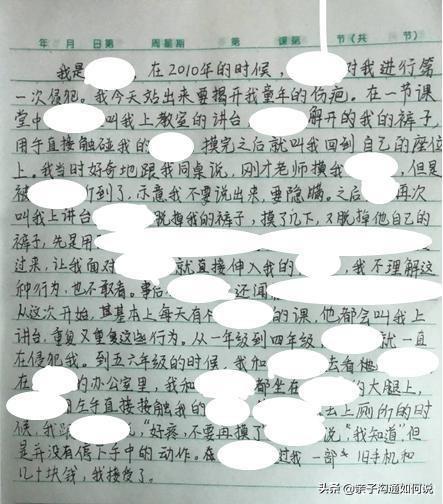 年 月 日第 周星期 第 课第 节(共 节)
我是 ,在2010年的时候, 对我进行第
一次侵犯。我今天站出来要揭开我童年的伤疤。在一节课
堂中 叫我上教室的讲台 解开的我的裤子,
用手直接触碰我的 摸完之后就叫我回到自己的座位
上。我当时好奇地跟我同桌说,刚才老师摸我 ,但是
被 听到了,示意我不要说出来,要隐瞒。之后 再次
叫我上讲台 脱掉我的裤子,摸了几下,又脱掉他自己的
裤子,先是用
过来,让我面对 就直接伸入我的 ,我不理解这
种行为,也不敢看。事后 还闻
从这次开始,其基本上每天有 的课,他都会叫我上
讲台,重复又重复这些行为。从一年级到四年级 就一直
在侵犯我。到五六年级的时候,我和 去看
在 的办公室里,我和 都坐在 的大腿上,
用左手直接接触我的 出上厕所的时
候,我 说,“好疼,不要再摸了 说,“我知道”但
是并没有停下手中的动作。在 过我一部 旧手机和
几十块钱,我接受了。
头条 @亲子沟通如何说